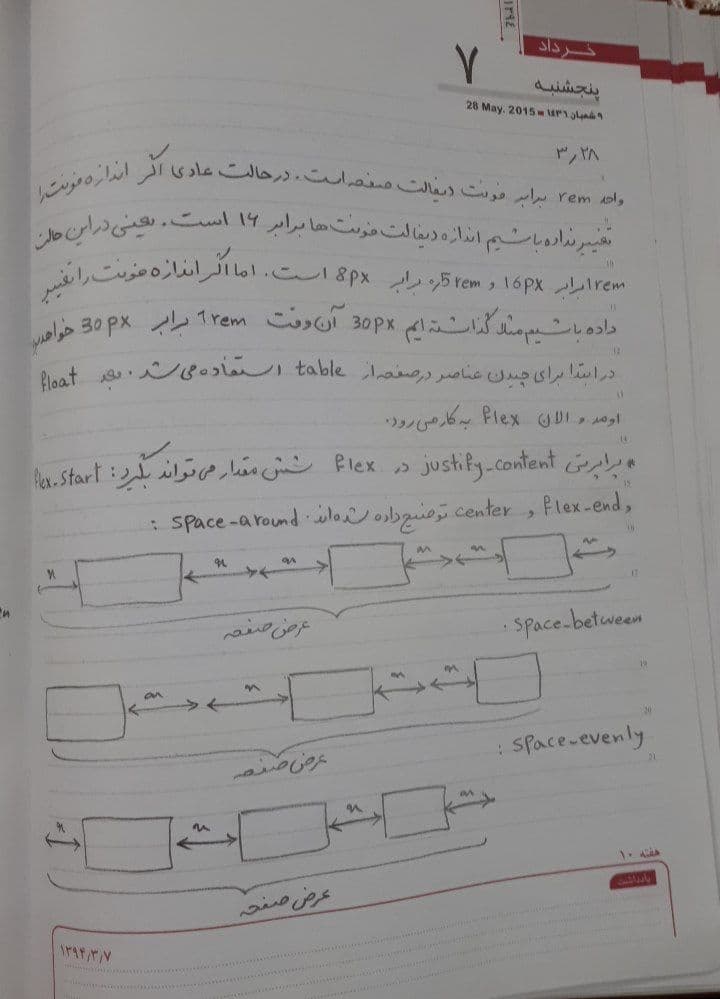 ۱۳۹۴
خرداد
۷
پنجشنبه
28 May. 2015 ■ ۹ شعبان ۱٤۳٦
۳٫۲۸
واحد rem برابر فونت دیفالت صفحه است. در حالت عادی اگر اندازه فونت را
تغییر نداده باشیم اندازه دیفالت فونت‌ها برابر ۱۶ است. یعنی در این حالت
1rem برابر 16px و 0,5rem برابر 8px است. اما اگر اندازه فونت را تغییر
داده باشیم مثلا گذاشته ایم 30px آن وقت 1rem برابر 30px خواهد
در ابتدا برای چیدن عناصر در صفحه از table استفاده می‌شد. بعد float
اومد و الان flex به کار می‌رود.
* پراپرتی justify-content در flex شش مقدار می‌تواند بگیرد: flex-start
و flex-end و center توضیح داده شده‌اند. space-around :
n n n n n n
عرض صفحه
space-between .
n n n n
عرض صفحه
space-evenly :
n n n n
عرض صفحه
هفته ۱۰
یادداشت
۱۳۹۴٫۳٫۷